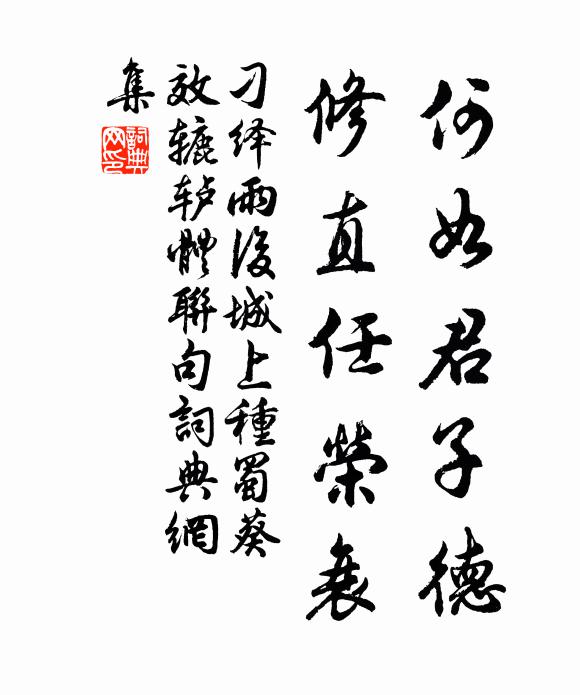 何如君子德
修直任榮衰
刁绎雨後城上種蜀葵
效辘轳體聯句詞典網
集
詞典
网印